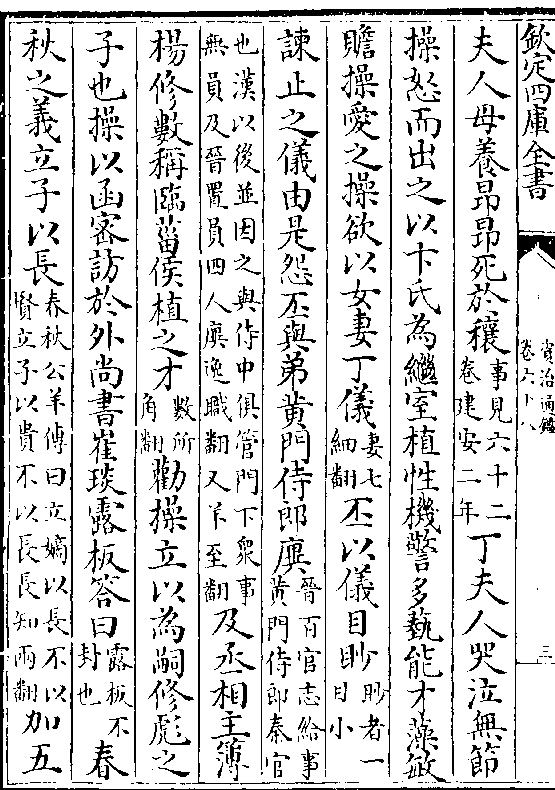 欽定四庫全書
資治通鑑
卷六十八
三
夫人母養昂昂死於穰事見六十二卷建安二年丁夫人哭泣無節
操怒而出之以卞氏為繼室植性機警多藝能才藻敏
贍操愛之操欲以女妻丁儀妻七細翻丕以儀目眇眇者一目小
諫止之儀由是怨丕與弟黄門侍郎廙晉百官志給事黄門侍郎秦官
也漢以後並因之與侍中俱管門下衆事無員及晉置員四人廙逸職翻又羊至翻及丞相主簿
楊修數稱臨菑侯植之才數所角翻勸操立以為嗣修彪之
子也操以函密訪於外尚書崔琰露板答曰露板不封也春
秋之義立子以長春秋公羊傳曰立嫡以長不以賢立子以貴不以長長知兩翻加五